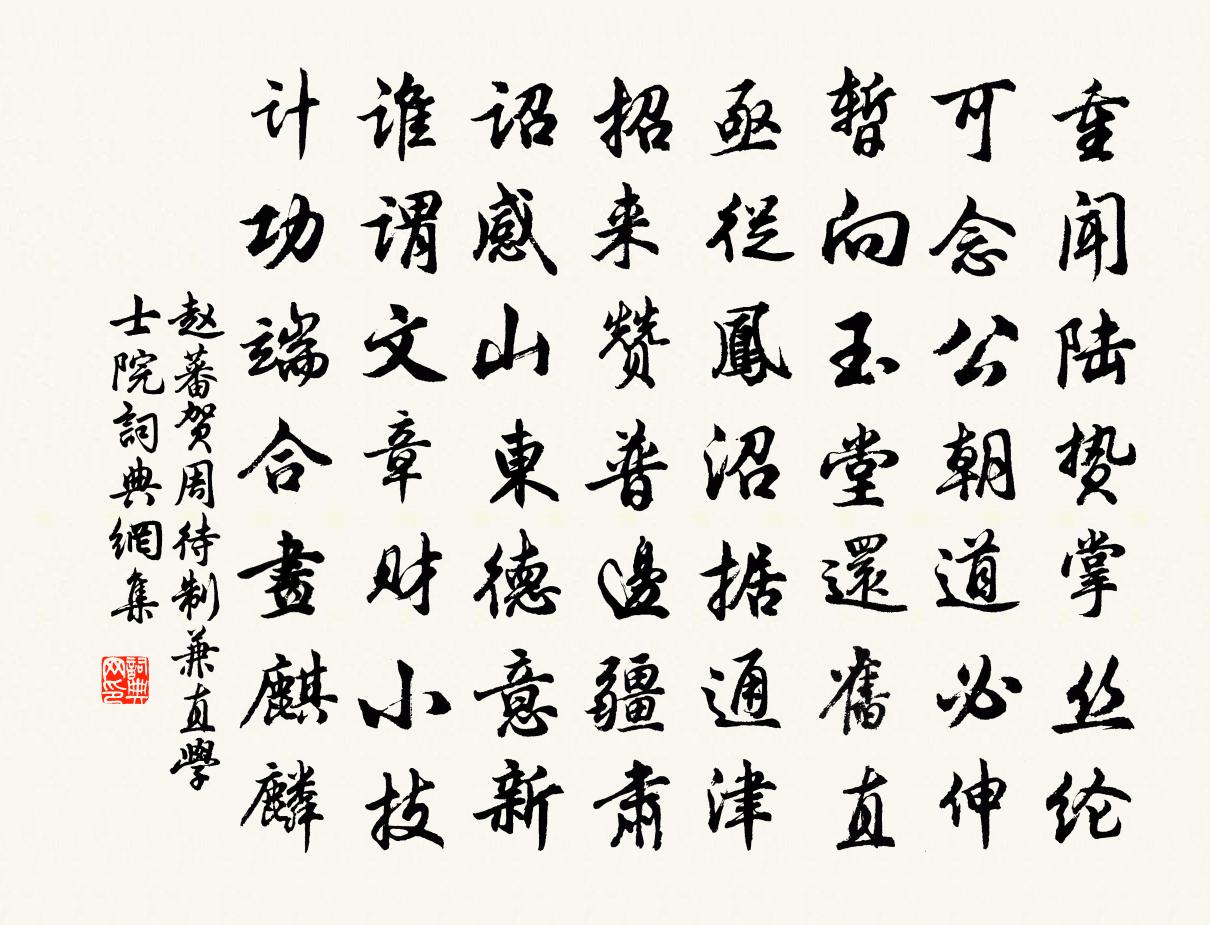 重闻陆贽掌丝纶
可念公朝道必伸
暂向玉堂還舊直
亟從鳳沼据通津
招来赞普邊疆肃
诏感山東德意新
谁谓文章财小技
计功端合畫麒麟
赵蕃贺周待制兼直學
士院詞典網集
詞典网印